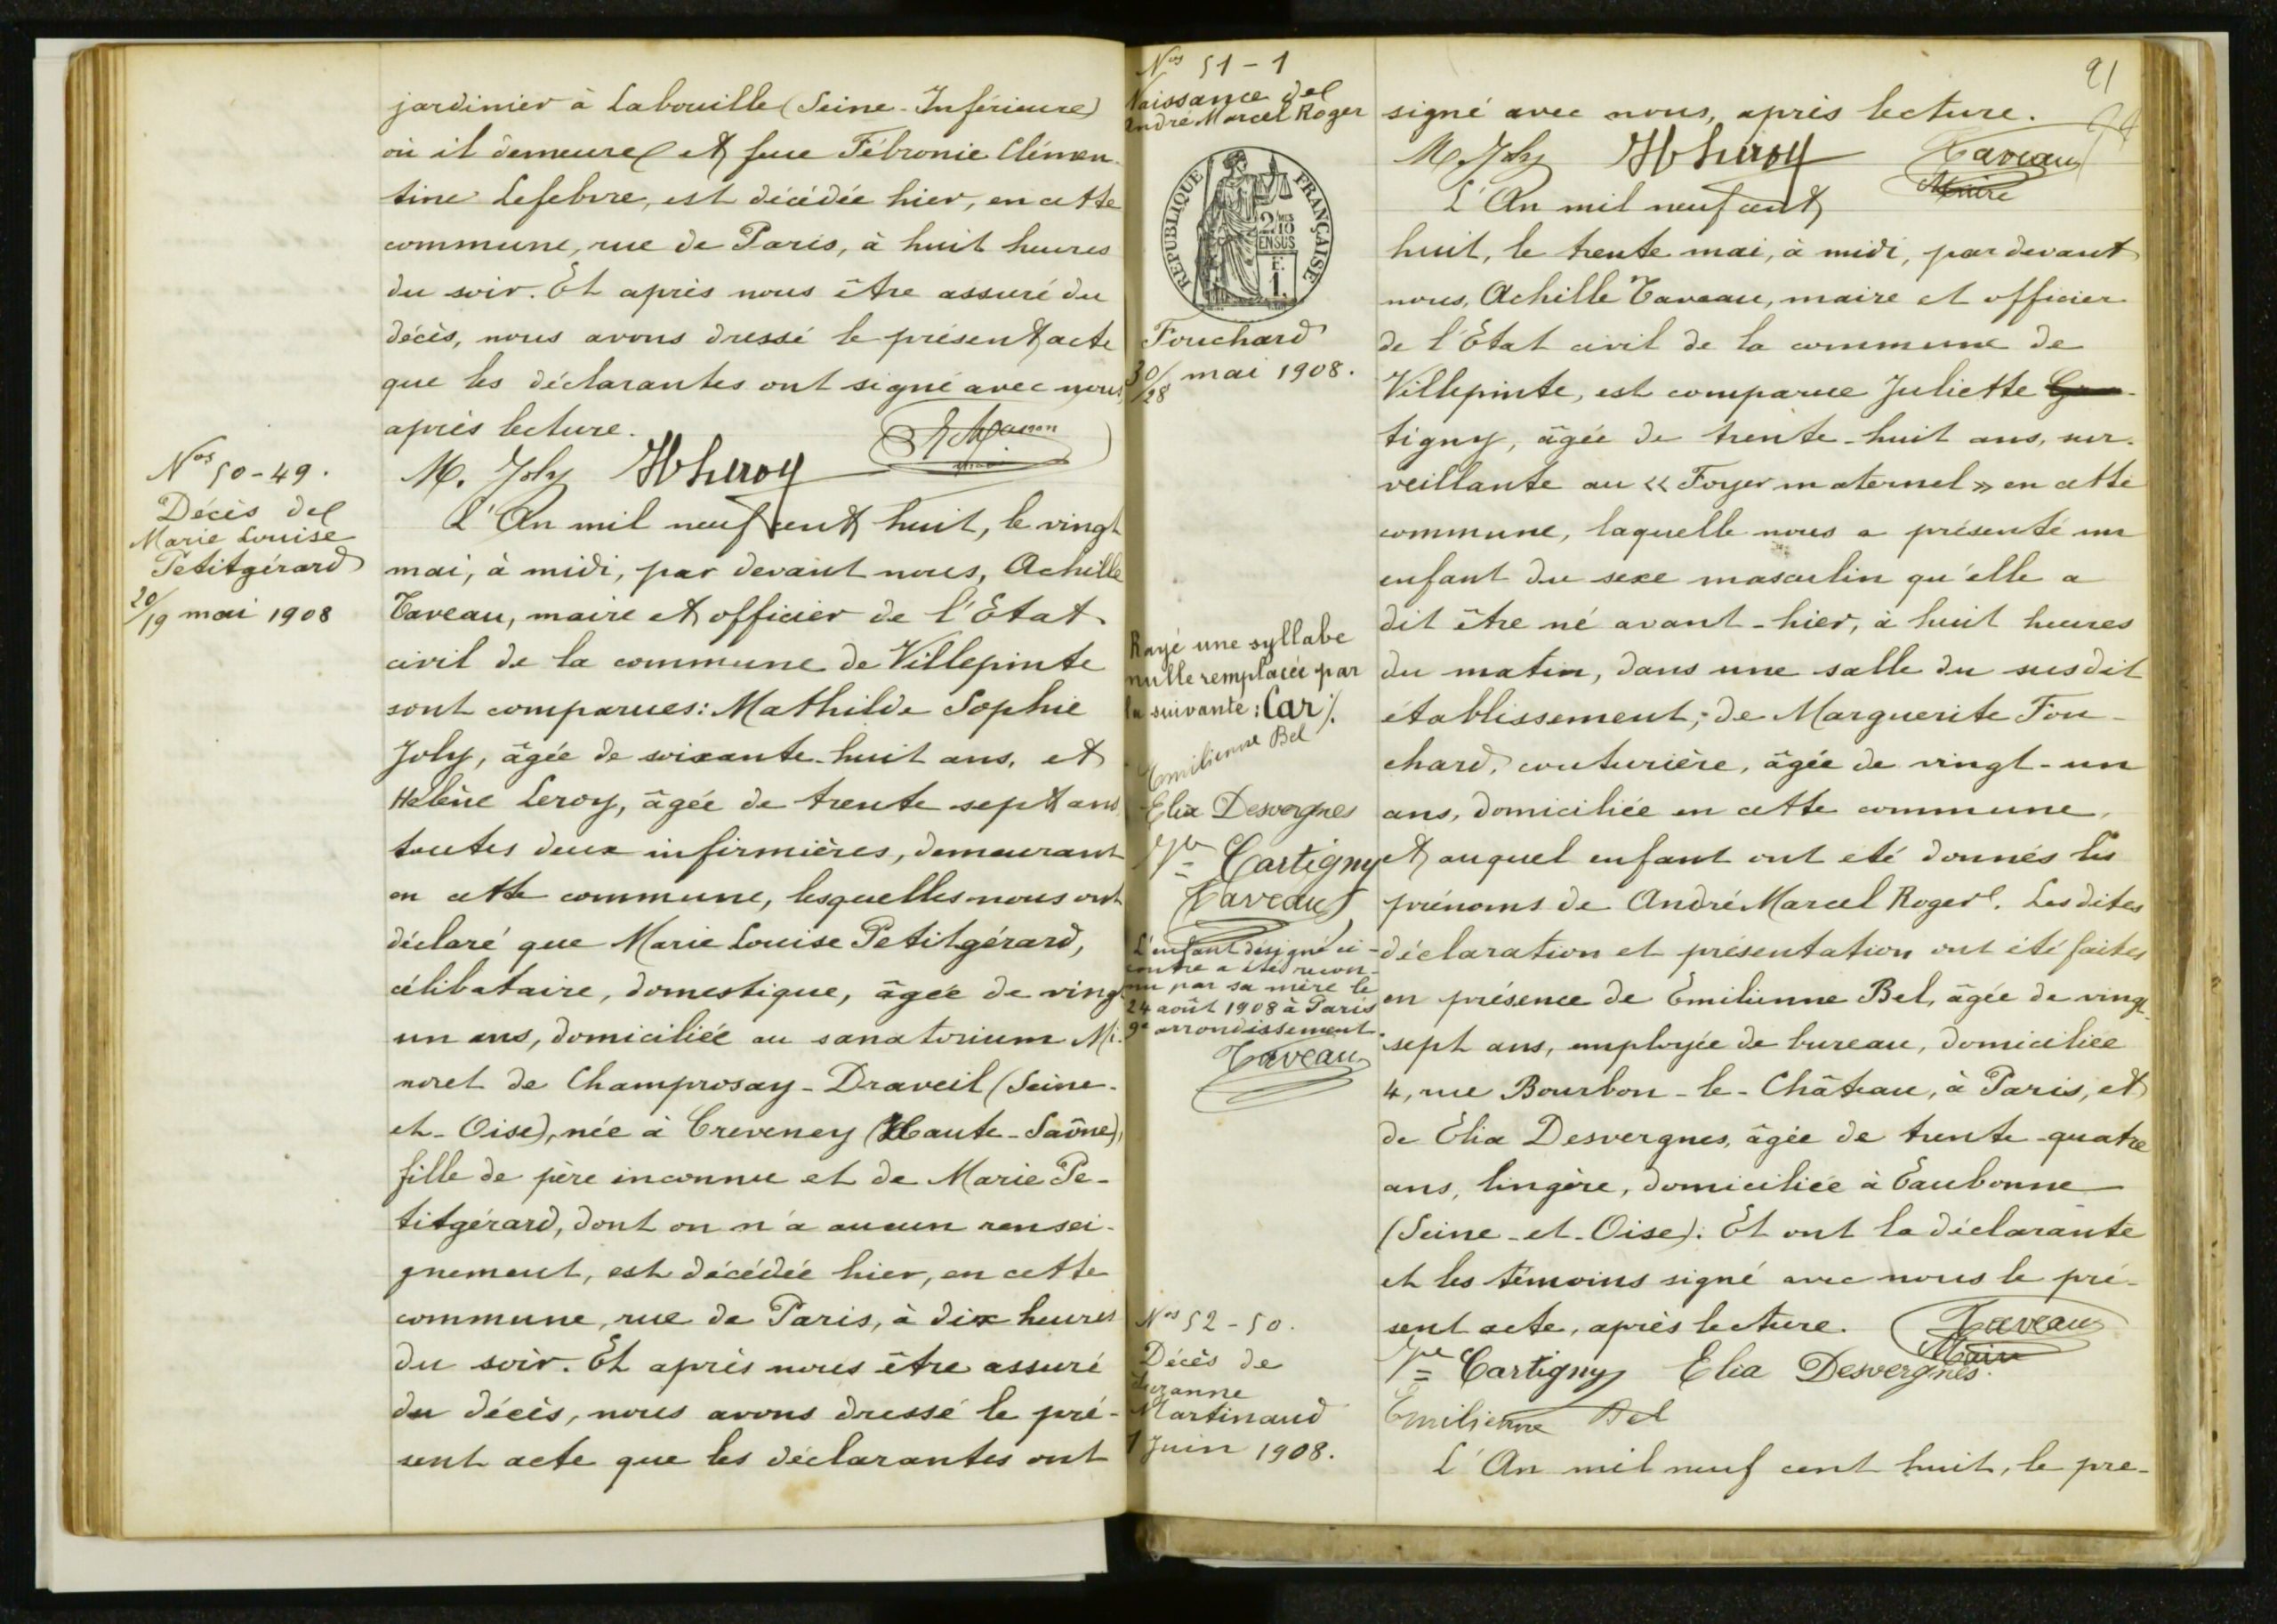 jardinier à Labouille (Seine-Inférieure)
où il demeure et feue Fébronie Clémen-
tine Lefebvre, est décédée hier, en cette
commune, rue de Paris, à huit heures
du soir. Et après nous être assuré du
décès, nous avons dressé le présent acte
que les déclarantes ont signé avec nous,
après lecture.
M. Joly HLeroy
Nos 50-49.
Décès de
Marie Louise
Petitgérard
20/19 mai 1908
L'An mil neuf cent huit, le vingt
mai, à midi, par devant nous, Achille
Taveau, maire et officier de l'Etat
civil de la commune de Villepinte
sont comparues: Mathilde Sophie
Joly, âgée de soixante-huit ans, et
Hélène Leroy, âgée de trente sept ans
toutes deux infirmières, demeurant
en cette commune, lesquelles nous ont
déclaré que Marie Louise Petitgérard,
célibataire, domestique, âgée de vingt
un ans, domiciliée au sanatorium Mi-
noret de Champrosay-Draveil (Seine-
et-Oise), née à Creveney (Haute-Saône),
fille de père inconnu et de Marie Pe-
titgérard, dont on n'a aucun rensei-
gnement, est décédée hier, en cette
commune, rue de Paris, à dix heures
du soir. Et après nous être assuré
du décès, nous avons dressé le pré-
sent acte que les déclarantes ont
91
signé avec nous, après lecture.
M. Joly HLeroy Taveau
Maire
Nos 51-1
Naissance de
André Marcel Roger
REPUBLIQUE FRANÇAISE
2/10
EN SUS
F.
1.
Fouchard
30/28 mai 1908.
L'An mil neuf cent
huit, le trente mai, à midi, par devant
nous, Achille Taveau, maire et officier
de l'Etat civil de la commune de
Villepinte, est comparue Juliette
tigny, âgée de trente-huit ans, sur-
veillante au « Foyer maternel » en cette
commune, laquelle nous a présenté un
enfant du sexe masculin qu'elle a
dit être né avant-hier, à huit heures
du matin, dans une salle du susdit
établissement; de Marguerite Fou-
chard, couturière, âgée de vingt-un
ans, domiciliée en cette commune,
et auquel enfant ont été donnés les
prénoms de André Marcel Roger. Les dites
déclaration et présentation ont été faites
en présence de Emilienne Bel, âgée de vingt-
sept ans, employée de bureau, domiciliée
4, rue Bourbon-le-Château, à Paris, et
de Elia Desvergnes, âgée de trente-quatre
ans, lingère, domiciliée à Eaubonne
(Seine-et-Oise). Et ont la déclarante
et les témoins signé avec nous le pré-
sent acte, après lecture. Taveau
Maire
Ve Cartigny Elia Desvergnes
Emilienne Bel
Rayé une syllabe
nulle remplacée par
la suivante: Car ./.
Emilienne Bel
Elia Desvergnes
Ve Cartigny
Taveau
L'enfant désigné ci-
contre a été recon-
nu par sa mère le
24 août 1908 à Paris
9e arrondissement.
Taveau
Nos 52-50.
Décès de
Suzanne
Martinaud
1 Juin 1908.
L'An mil neuf cent huit, le pre-